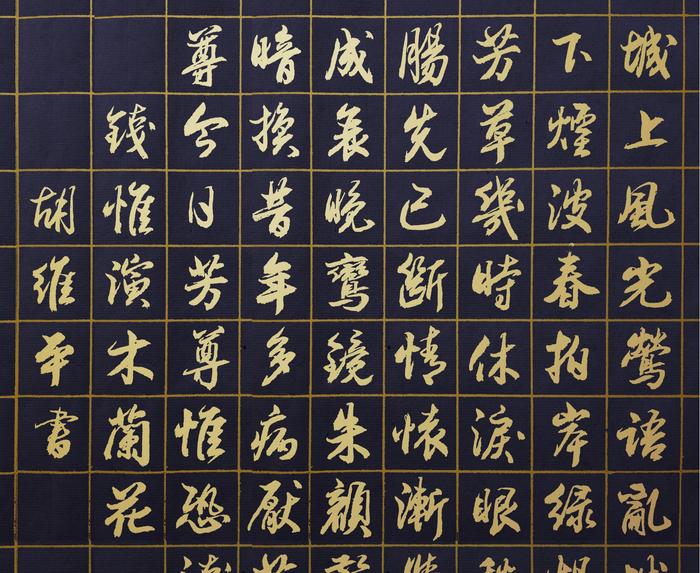 城上風光鶯語亂
下煙波春拍岸綠
芳草幾時休淚眼
腸先已斷情懷漸
成衰晚鸞鏡朱顏
暗換昔年多病厭
尊今日芳尊惟恐
錢惟演木蘭花
胡維平書